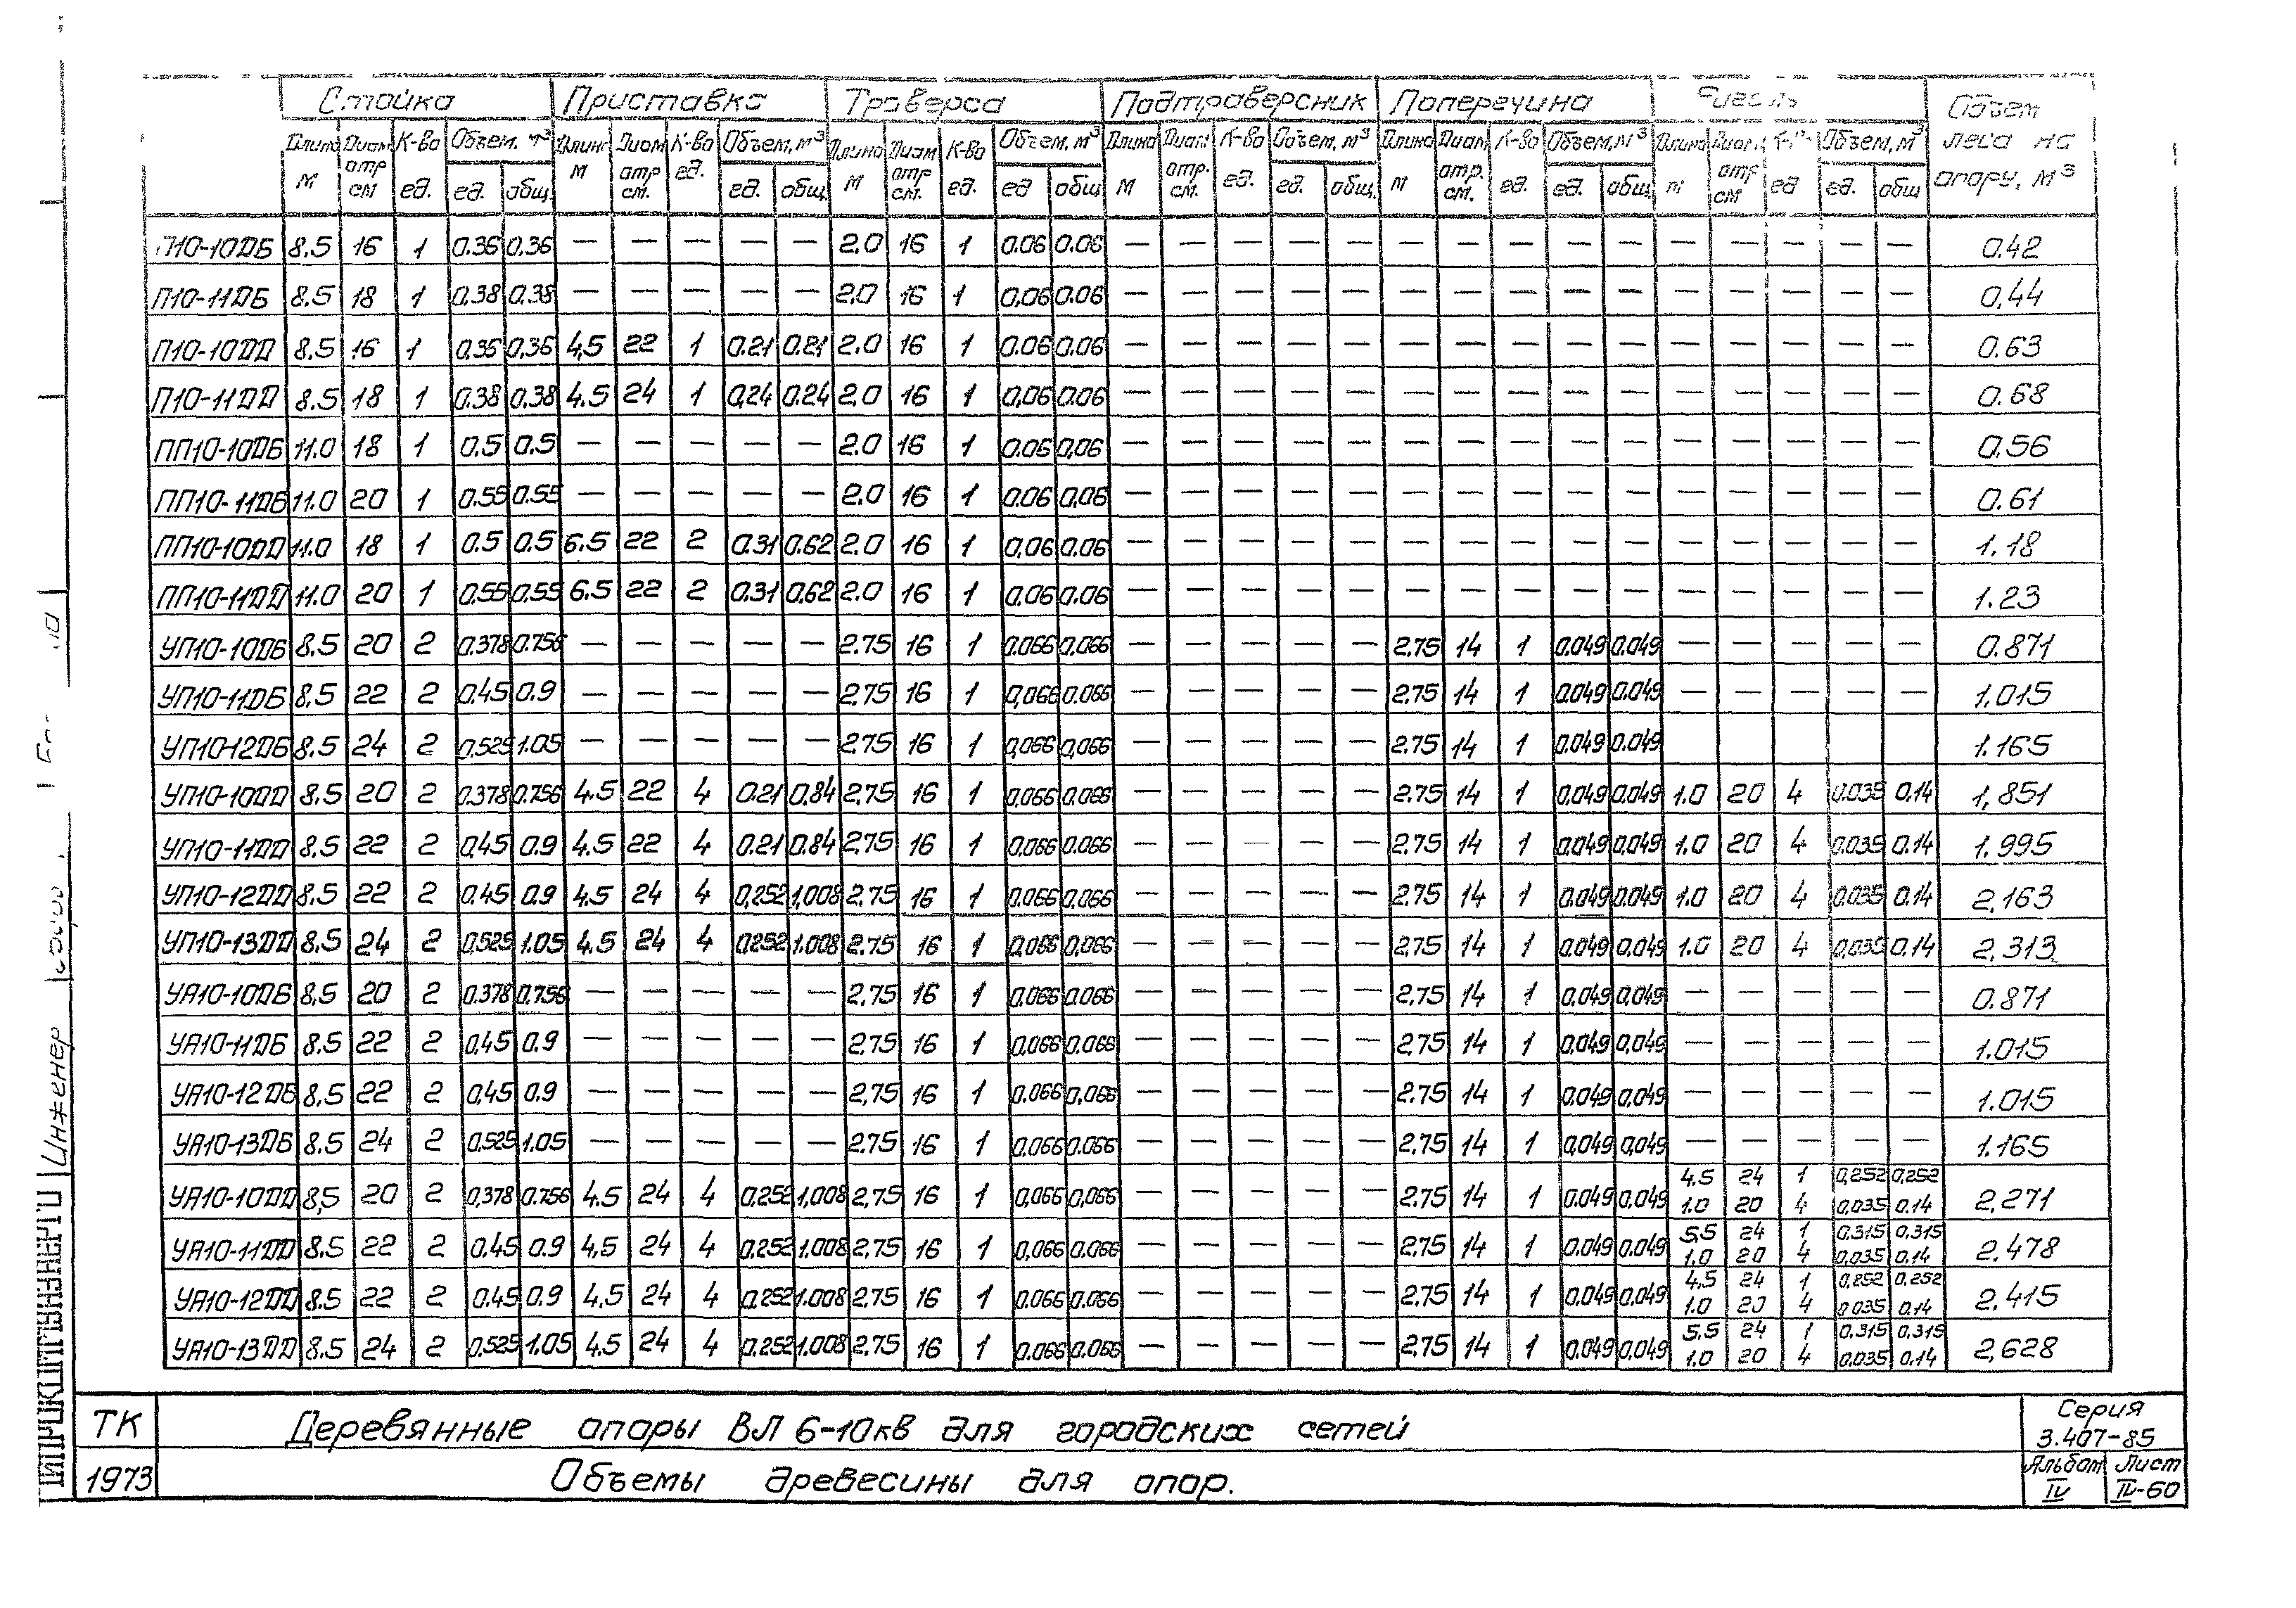 Стойка Приставка Траверса Подтраверсник Поперечина Ригель Объем леса на опору, м³
Длина м Диам отр см К-во ед. Объем, м³ ед. общ. Длина м Диам отр см. К-во ед. Объем, м³ ед. общ. Длина м Диам отр см. К-во ед. Объем, м³ ед общ Длина м Диам отр. см. К-во ед. Объем, м³ ед. общ. Длина м Диам отр. см. К-во ед. Объем, м³ ед. общ. Длина м Диам. отр см К-во ед Объем, м³ ед. общ
П10-10ДБ 8.5 16 1 0.36 0.36 — — — — — 2.0 16 1 0.06 0.06 — — — — — — — — — — — — — — — 0.42
П10-11ДБ 8.5 18 1 0,38 0.38 — — — — — 2.0 16 1 0,06 0.06 — — — — — — — — — — — — — — — 0,44
П10-10ДД 8.5 16 1 0.36 0,36 4,5 22 1 0.21 0.21 2.0 16 1 0.06 0.06 — — — — — — — — — — — — — — — 0.63
П10-11ДД 8.5 18 1 0.38 0.38 4.5 24 1 0,24 0.24 2.0 16 1 0,06 0.06 — — — — — — — — — — — — — — — 0.68
ПП10-10ДБ 11.0 18 1 0.5 0.5 — — — — — 2.0 16 1 0.06 0,06 — — — — — — — — — — — — — — — 0.56
ПП10-11ДБ 11.0 20 1 0.55 0.55 — — — — — 2.0 16 1 0.06 0,06 — — — — — — — — — — — — — — — 0.61
ПП10-10ДД 11.0 18 1 0.5 0.5 6.5 22 2 0.31 0.62 2.0 16 1 0,06 0.06 — — — — — — — — — — — — — — — 1.18
ПП10-11ДД 11.0 20 1 0.55 0.55 6.5 22 2 0.31 0.62 2.0 16 1 0.06 0.06 — — — — — — — — — — — — — — — 1.23
УП10-10ДБ 8.5 20 2 0.378 0.756 — — — — — 2.75 16 1 0.066 0,066 — — — — — 2.75 14 1 0.049 0,049 — — — — — 0.871
УП10-11ДБ 8.5 22 2 0,45 0.9 — — — — — 2.75 16 1 0,066 0.066 — — — — — 2.75 14 1 0.049 0.049 — — — — — 1.015
УП10-12ДБ 8.5 24 2 0,525 1.05 — — — — — 2.75 16 1 0,066 0,066 — — — — — 2.75 14 1 0.049 0.049 1.165
УП10-10ДД 8.5 20 2 0.378 0.756 4.5 22 4 0.21 0,84 2,75 16 1 0,066 0.066 — — — — — 2.75 14 1 0,049 0.049 1.0 20 4 0.035 0.14 1,851
УП10-11ДД 8.5 22 2 0,45 0.9 4.5 22 4 0.21 0.84 2,75 16 1 0.066 0.066 — — — — — 2.75 14 1 0,049 0,049 1.0 20 4 0.035 0.14 1.995
УП10-12ДД 8.5 22 2 0.45 0.9 4.5 24 4 0,252 1,008 2.75 16 1 0.066 0.066 — — — — — 2.75 14 1 0.049 0.049 1.0 20 4 0.035 0.14 2,163
УП10-13ДД 8.5 24 2 0,525 1.05 4.5 24 4 0.252 1.008 2.75 16 1 0,066 0,066 — — — — — 2.75 14 1 0,049 0,049 1.0 20 4 0,035 0.14 2,313
УА10-10ДБ 8.5 20 2 0.378 0,756 — — — — — 2,75 16 1 0.066 0.066 — — — — — 2.75 14 1 0.049 0,049 — — — — — 0.871
УА10-11ДБ 8.5 22 2 0,45 0.9 — — — — — 2,75 16 1 0,066 0.066 — — — — — 2.75 14 1 0,049 0,049 — — — — — 1.015
УА10-12ДБ 8.5 22 2 0,45 0.9 — — — — — 2,75 16 1 0.066 0,066 — — — — — 2.75 14 1 0.049 0,049 — — — — — 1.015
УА10-13ДБ 8.5 24 2 0,525 1.05 — — — — — 2.75 16 1 0,066 0.066 — — — — — 2.75 14 1 0,049 0,049 — — — — — 1.165
УА10-10ДД 8,5 20 2 0,378 0.756 4.5 24 4 0.252 1,008 2,75 16 1 0,066 0,066 — — — — — 2.75 14 1 0.049 0,049 4.5 24 1 0,252 0,252 2,271
1.0 20 4 0,035 0.14
УА10-11ДД 8.5 22 2 0.45 0.9 4,5 24 4 0.252 1.008 2,75 16 1 0,066 0.066 — — — — — 2.75 14 1 0.049 0,049 5.5 24 1 0.315 0,315 2.478
1.0 20 4 0,035 0.14
УА10-12ДД 8.5 22 2 0.45 0.9 4.5 24 4 0.252 1.008 2.75 16 1 0.066 0.066 — — — — — 2.75 14 1 0.049 0,049 4,5 24 1 0.252 0,252 2.415
1.0 20 4 0.035 0.14
УА10-13ДД 8.5 24 2 0.525 1.05 4.5 24 4 0.252 1.008 2,75 16 1 0.066 0.066 — — — — — 2.75 14 1 0.049 0,049 5.5 24 1 0.315 0.315 2,628
1.0 20 4 0,035 0.14
Инженер
ТК Деревянные опоры ВЛ 6-10кв для городских сетей Серия 3.407-85
1973 Объемы древесины для опор. Альбом IV Лист IV-60